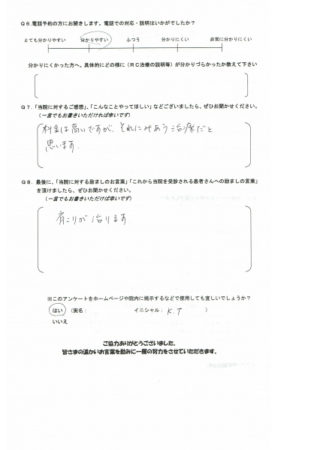 Q6.電話予約の方にお聞きします。電話での対応・説明はいかがでしたか？
とても分かりやすい　分かりやすい　ふつう　分かりにくい　非常に分かりにくい
分かりにくかった方へ、具体的にどの様に（MC治療の説明等）が分かりづらかったか教えて下さい
Q7.「当院に対するご感想」、「こんなことやってほしい」などございましたら、ぜひお聞かせください。
（一言でもお書きいただければ幸いです）
料金は高いですが、それにみあう治療だと
思います
Q8.最後に、「当院に対する励ましのお言葉」「これから当院を受診される患者さんへの励ましの言葉」
を頂けましたら、ぜひお聞かせください。
（一言でもお書きいただければ幸いです）
肩こりが治ります
※このアンケートをホームページや院内に掲示するなどで使用しても宜しいでしょうか？
はい　（実名：　イニシャル：K T　）
いいえ
ご協力ありがとうございました。
皆さまの温かいお言葉を励みに一層の努力をさせていただきます。